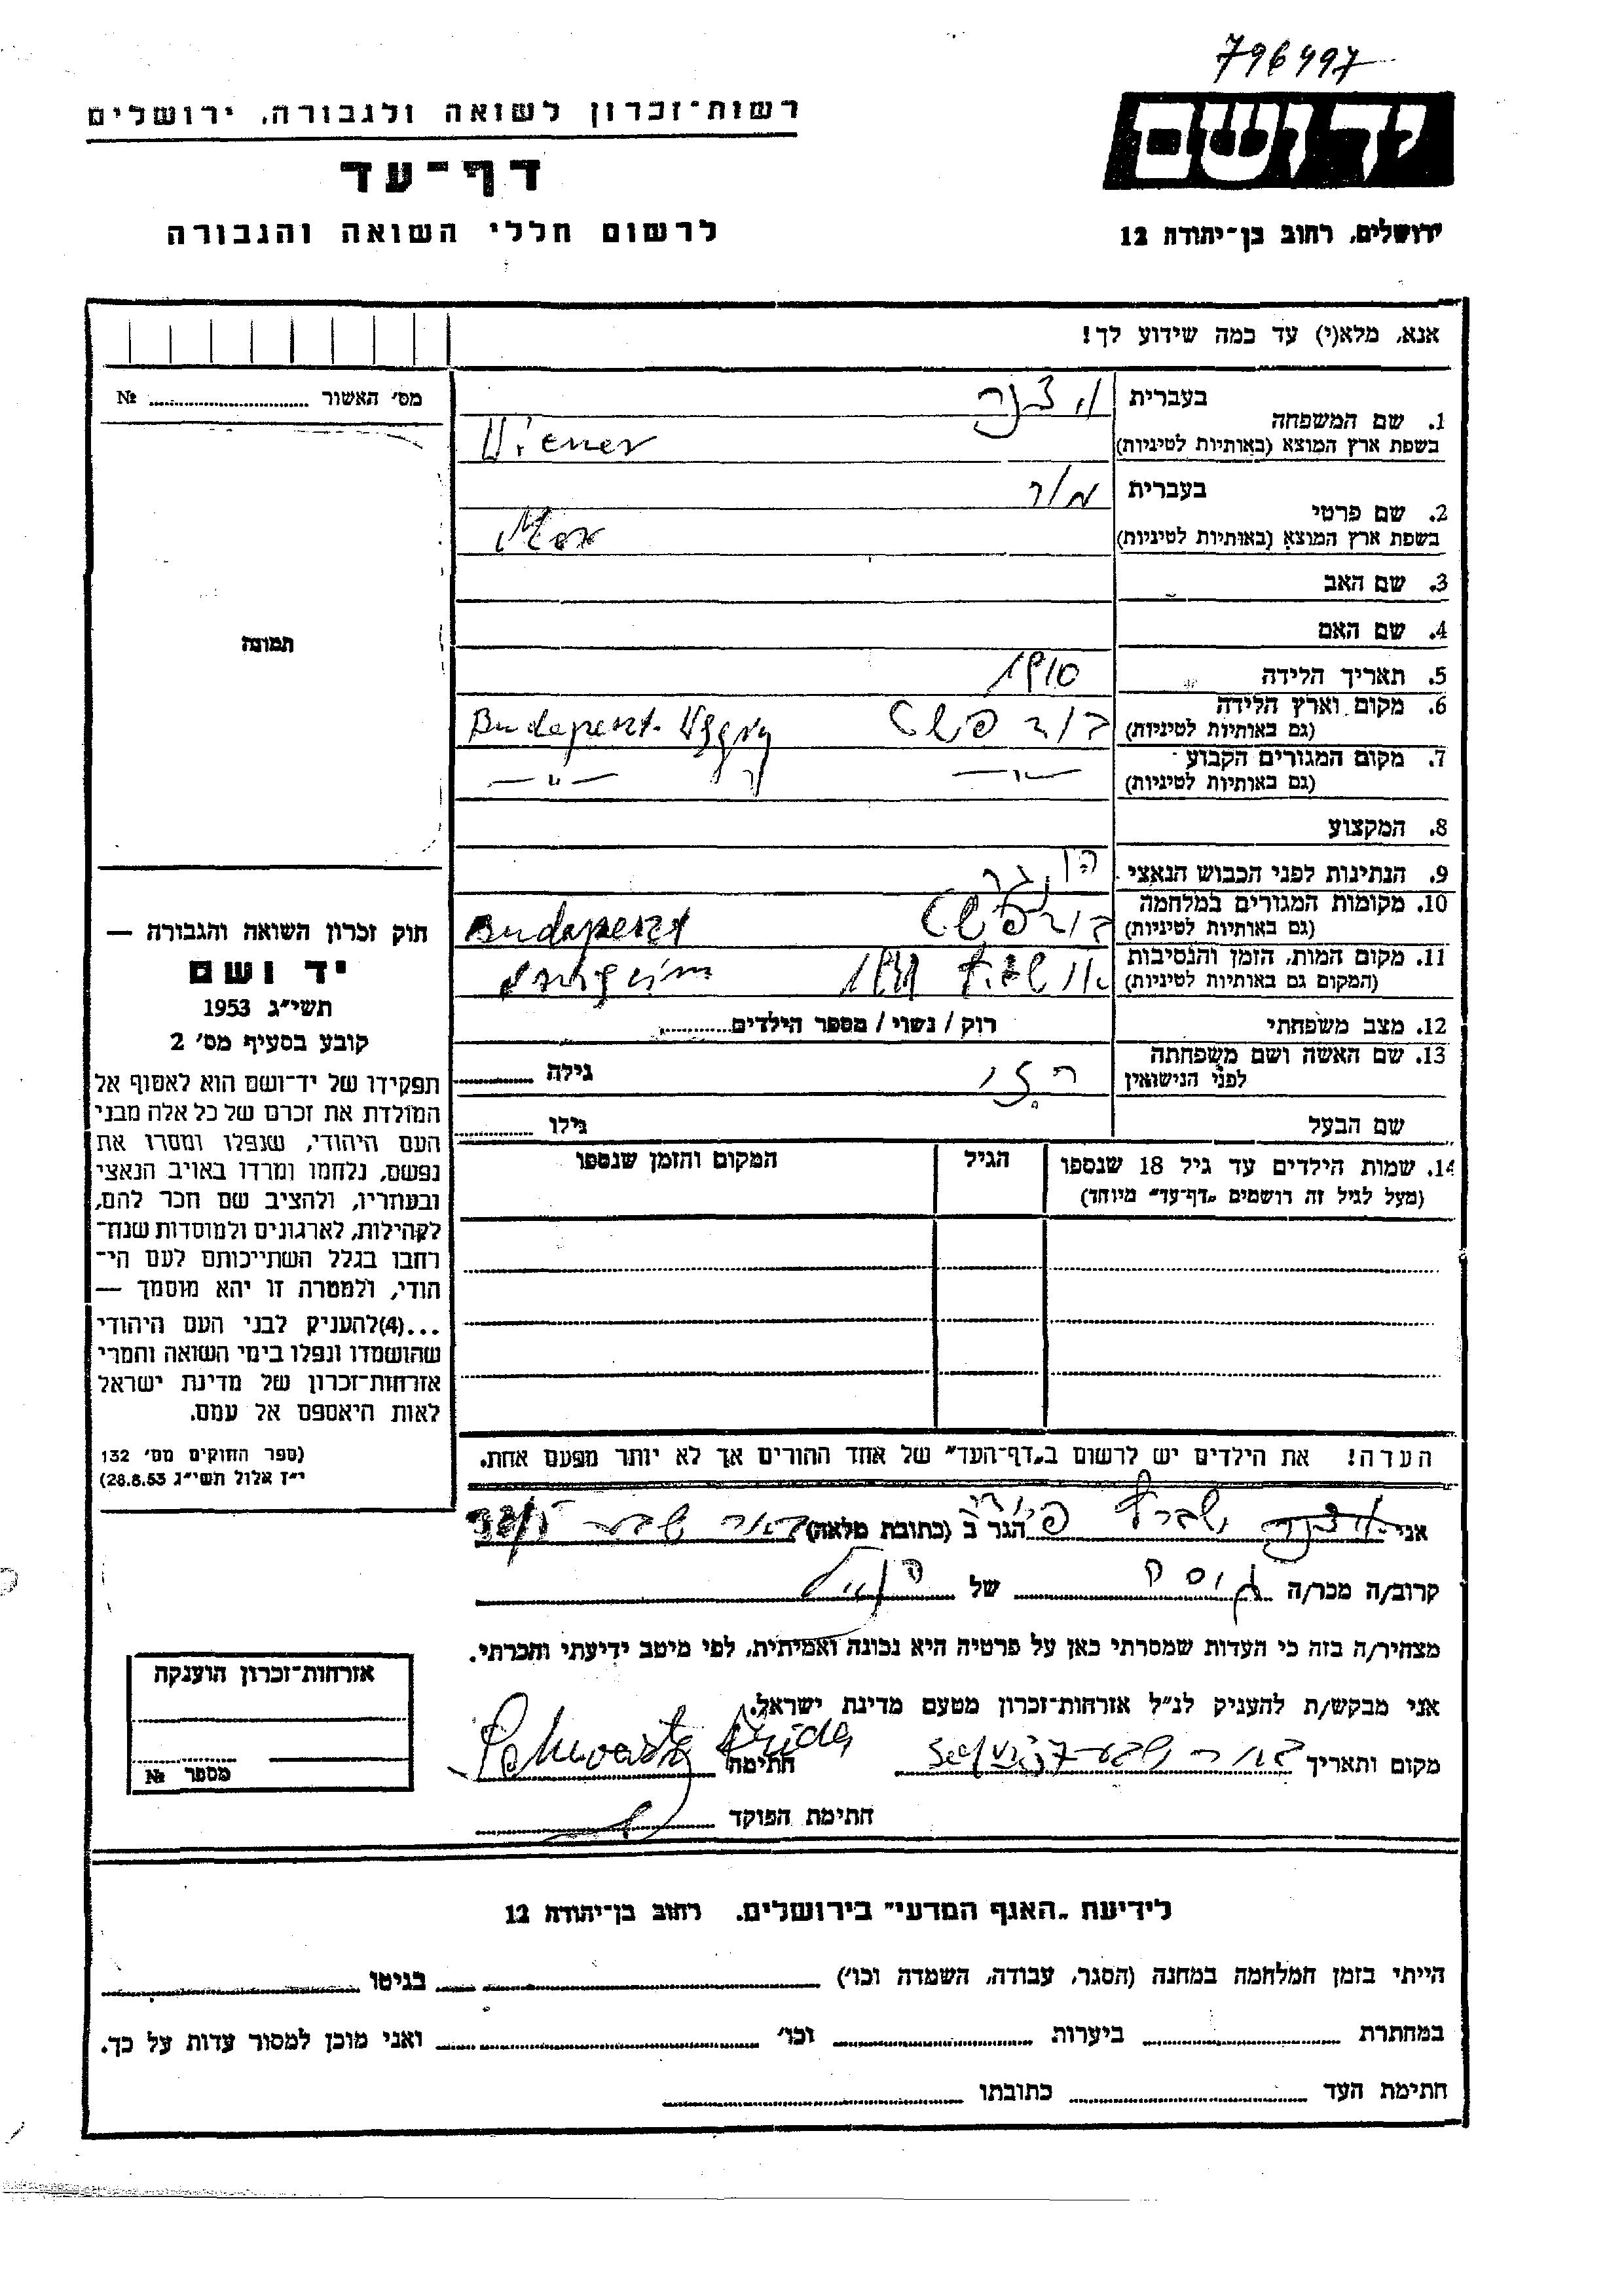 796497
רשות-זכרון לשואה ולגבורה, ירושלים
יד ושם
דף-עד
לרשום חללי השואה והגבורה
ירושלים, רחוב בן-יהודה 12
אנא, מלא(י) עד כמה שידוע לך!
מס' האשור № ............
1. שם המשפחה בעברית
Wiener בשפת ארץ המוצא (באותיות לטיניות)
2. שם פרטי בעברית מור
בשפת ארץ המוצא (באותיות לטיניות) Mor
3. שם האב
4. שם האם
תמונה
5. תאריך הלידה 1910
6. מקום וארץ הלידה (גם באותיות לטיניות) בודפשט Budapeszt
7. מקום המגורים הקבוע (גם באותיות לטיניות) — " — — " —
8. המקצוע
9. הנתינות לפני הכבוש הנאצי
10. מקומות המגורים במלחמה (גם באותיות לטיניות) בודפשט Budapeszt
11. מקום המות, הזמן והנסיבות (המקום גם באותיות לטיניות)
12. מצב משפחתי רוק / נשוי / מספר הילדים............
13. שם האשה ושם משפחתה לפני הנישואין גילה ............
שם הבעל גילו ............
14. שמות הילדים עד גיל 18 שנספו (מעל לגיל זה רושמים „דף-עד" מיוחד)
הגיל
המקום והזמן שנספו
חוק זכרון השואה והגבורה —
יד ושם
תשי"ג 1953
קובע בסעיף מס' 2
תפקידו של יד-ושם הוא לאסוף אל
המולדת את זכרם של כל אלה מבני
העם היהודי, שנפלו ומסרו את
נפשם, נלחמו ומרדו באויב הנאצי
ובעוזריו, ולהציב שם וזכר להם,
לקהילות, לארגונים ולמוסדות שנח-
רבו בגלל השתייכותם לעם הי-
הודי, ולמטרה זו יהא מוסמך —
...(4)להעניק לבני העם היהודי
שהושמדו ונפלו בימי השואה והמרי
אזרחות-זכרון של מדינת ישראל
לאות היאספם אל עמם.
(ספר החוקים מס' 132
י"ז אלול תשי"ג 28.8.53)
הערה! את הילדים יש לרשום ב„דף-העד" של אחד ההורים אך לא יותר מפעם אחת.
אני הגר ב (כתובת מלאה) באר שבע
קרוב/ה מכר/ה של
מצהיר/ה בזה כי העדות שמסרתי כאן על פרטיה היא נכונה ואמיתית, לפי מיטב ידיעתי והכרתי.
אני מבקש/ת להעניק לנ"ל אזרחות-זכרון מטעם מדינת ישראל.
מקום ותאריך באר שבע חתימה
חתימת הפוקד
אזרחות-זכרון הוענקה
מספר №
לידיעת „האגף המדעי" בירושלים, רחוב בן-יהודה 12
הייתי בזמן המלחמה במחנה (הסגר, עבודה, השמדה וכו') ............ בגיטו ............
במחתרת ............ ביערות ............ וכו' ............ ואני מוכן למסור עדות על כך.
חתימת העד ............ כתובתו ............